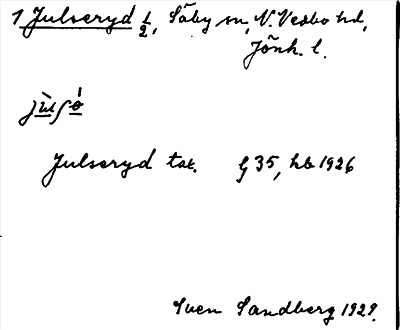 1 Julseryd 1/2, Säby sn, N. Vedbo hd,
Jönk. l.
Julseryd tak. G 35, hb 1926
Sven Sandberg 1929.